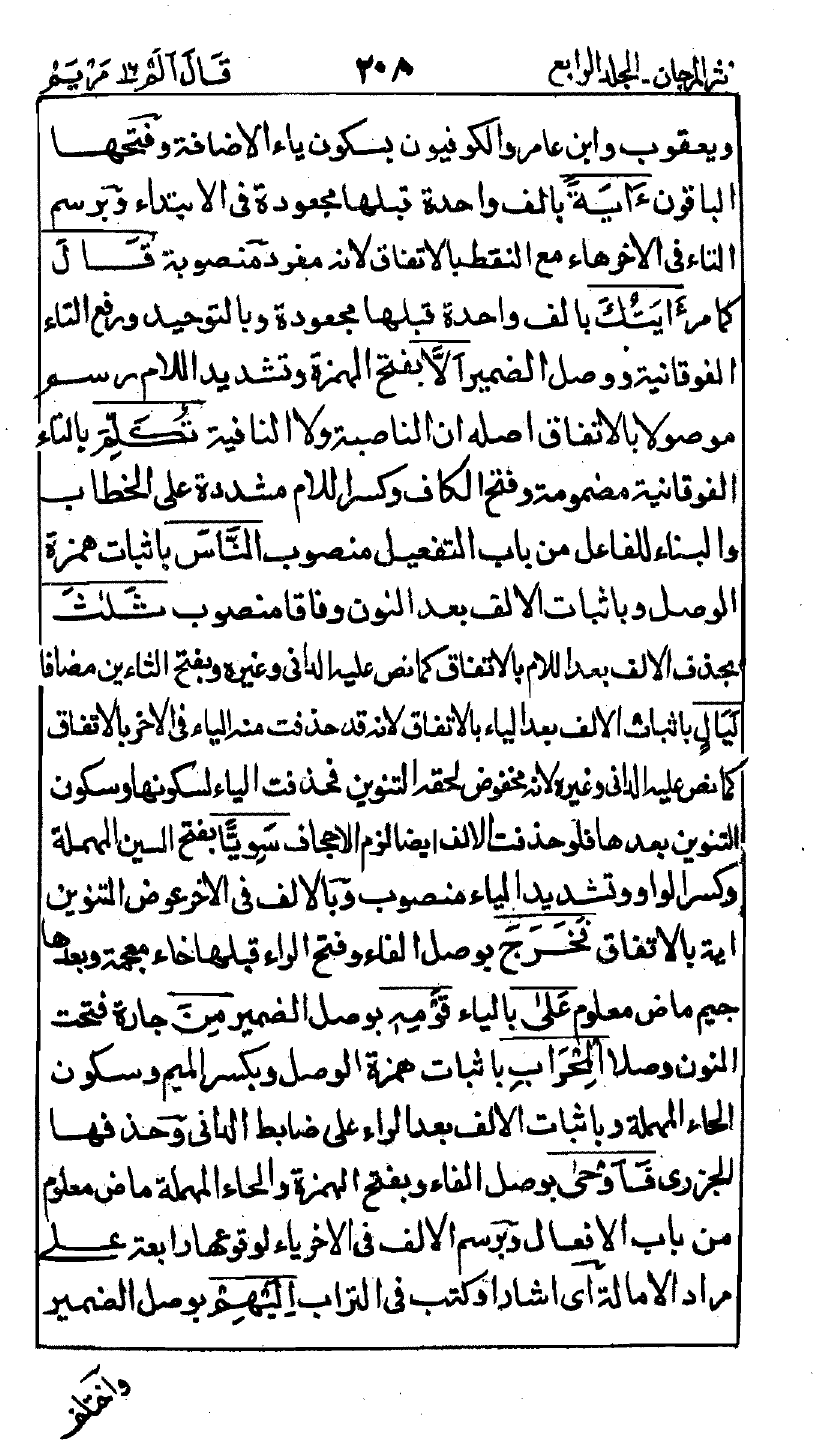 نثر المرجان ـ المجلد الرابع ٢٠٨ قَالَ اَلَمْ ١٦ مَرْيَمْ
ويعقوب وابن عامر والكوفيون بسكون ياء الاضافة وفَتَحَها
الباقون ءَايَةً بالف واحدة قبلها مجعودة فى الابتداء وبَرسم
التاء فى الاخر هاء مع النقط بالاتفاق لانه مفرد مَنصوبة قَالَ
كما مر ءَايَتُكَ بالف واحدة قبلها مجعودة وبالتوحيد ورفع التاء
الفوقانية ووصل الضمير اَلَّا بفتح الهمزة وتشديد اللام رسم
موصولا بالاتفاق اصله ان الناصبة ولا النافية تُكَلِّمَ بالتاء
الفوقانية مضمومة وفتح الكاف وكسر اللام مشددة على الخطاب
والبناء للفاعل من باب التفعيل منصوب النَّاسَ باثبات همزة
الوصل وباثبات الالف بعد النون وفاقا منصوب ثَلٰثَ
بحذف الالف بعد اللام بالاتفاق كما نص عليه الدانى وغيره وبفتح الثاءين مضافا
لَيَالٍ باثبات الالف بعد الياء بالاتفاق لانه قد حذفت منه الياء فى الاخر بالاتفاق
كما نص عليه الدانى وغيره لانه مخفوض لحقه التنوين فحذفت الياء لسكونها وسكون
التنوين بعدها فلو حذفت الالف ايضا لزم الاجحاف سَوِيًّا بفتح السين المهملة
وكسر الواو وتشديد الياء منصوب وَبالالف فى الاخر عوض التنوين
اية بالاتفاق فَخَرَجَ بوصل الفاء وفتح الراء قبلها خاء معجمة وبعدها
جيم ماض معلوم عَلٰى بالياء قَوْمِهٖ بوصل الضمير مِنَ جارة فتحت
النون وصلا الْمِحْرَابِ باثبات همزة الوصل وبكسر الميم وسكون
الحاء المهملة وباثبات الالف بعد الراء على ضابط الدانى وَحذفها
للجزرى فَاَوْحٰى بوصل الفاء وبفتح الهمزة والحاء المهملة ماض معلوم
من باب الافعال وبَرسم الالف فى الاخر ياء لوقوعها رابعة على
مراد الامالة اَى اشار اوكتب فى التراب اِلَيْهِمْ بوصل الضمير
واختلف